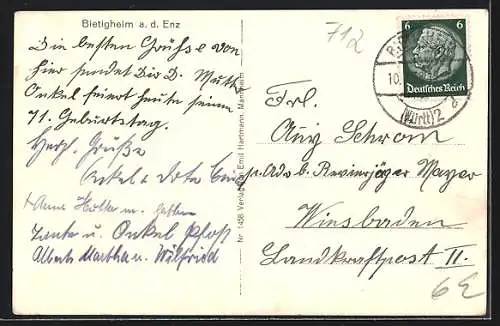 Bietigheim a. d. Enz
Die besten Grüße von
hier sendet Dir D. Mutter
Onkel feiert heute seinen
71. Geburtstag.
Herzl. Grüße
Onkel u. Dote
Anna
Tante u. Onkel Pfost
Albert Martha u. Wilfried
Nr. 1456 Verlag Emil Hartmann, Mannheim
712
6 6
Deutsches Reich
10.
(Württ) 2
Frl.
Schrom
b. Revierjäger Mayer
Wiesbaden
Landkraftpost II.
6E